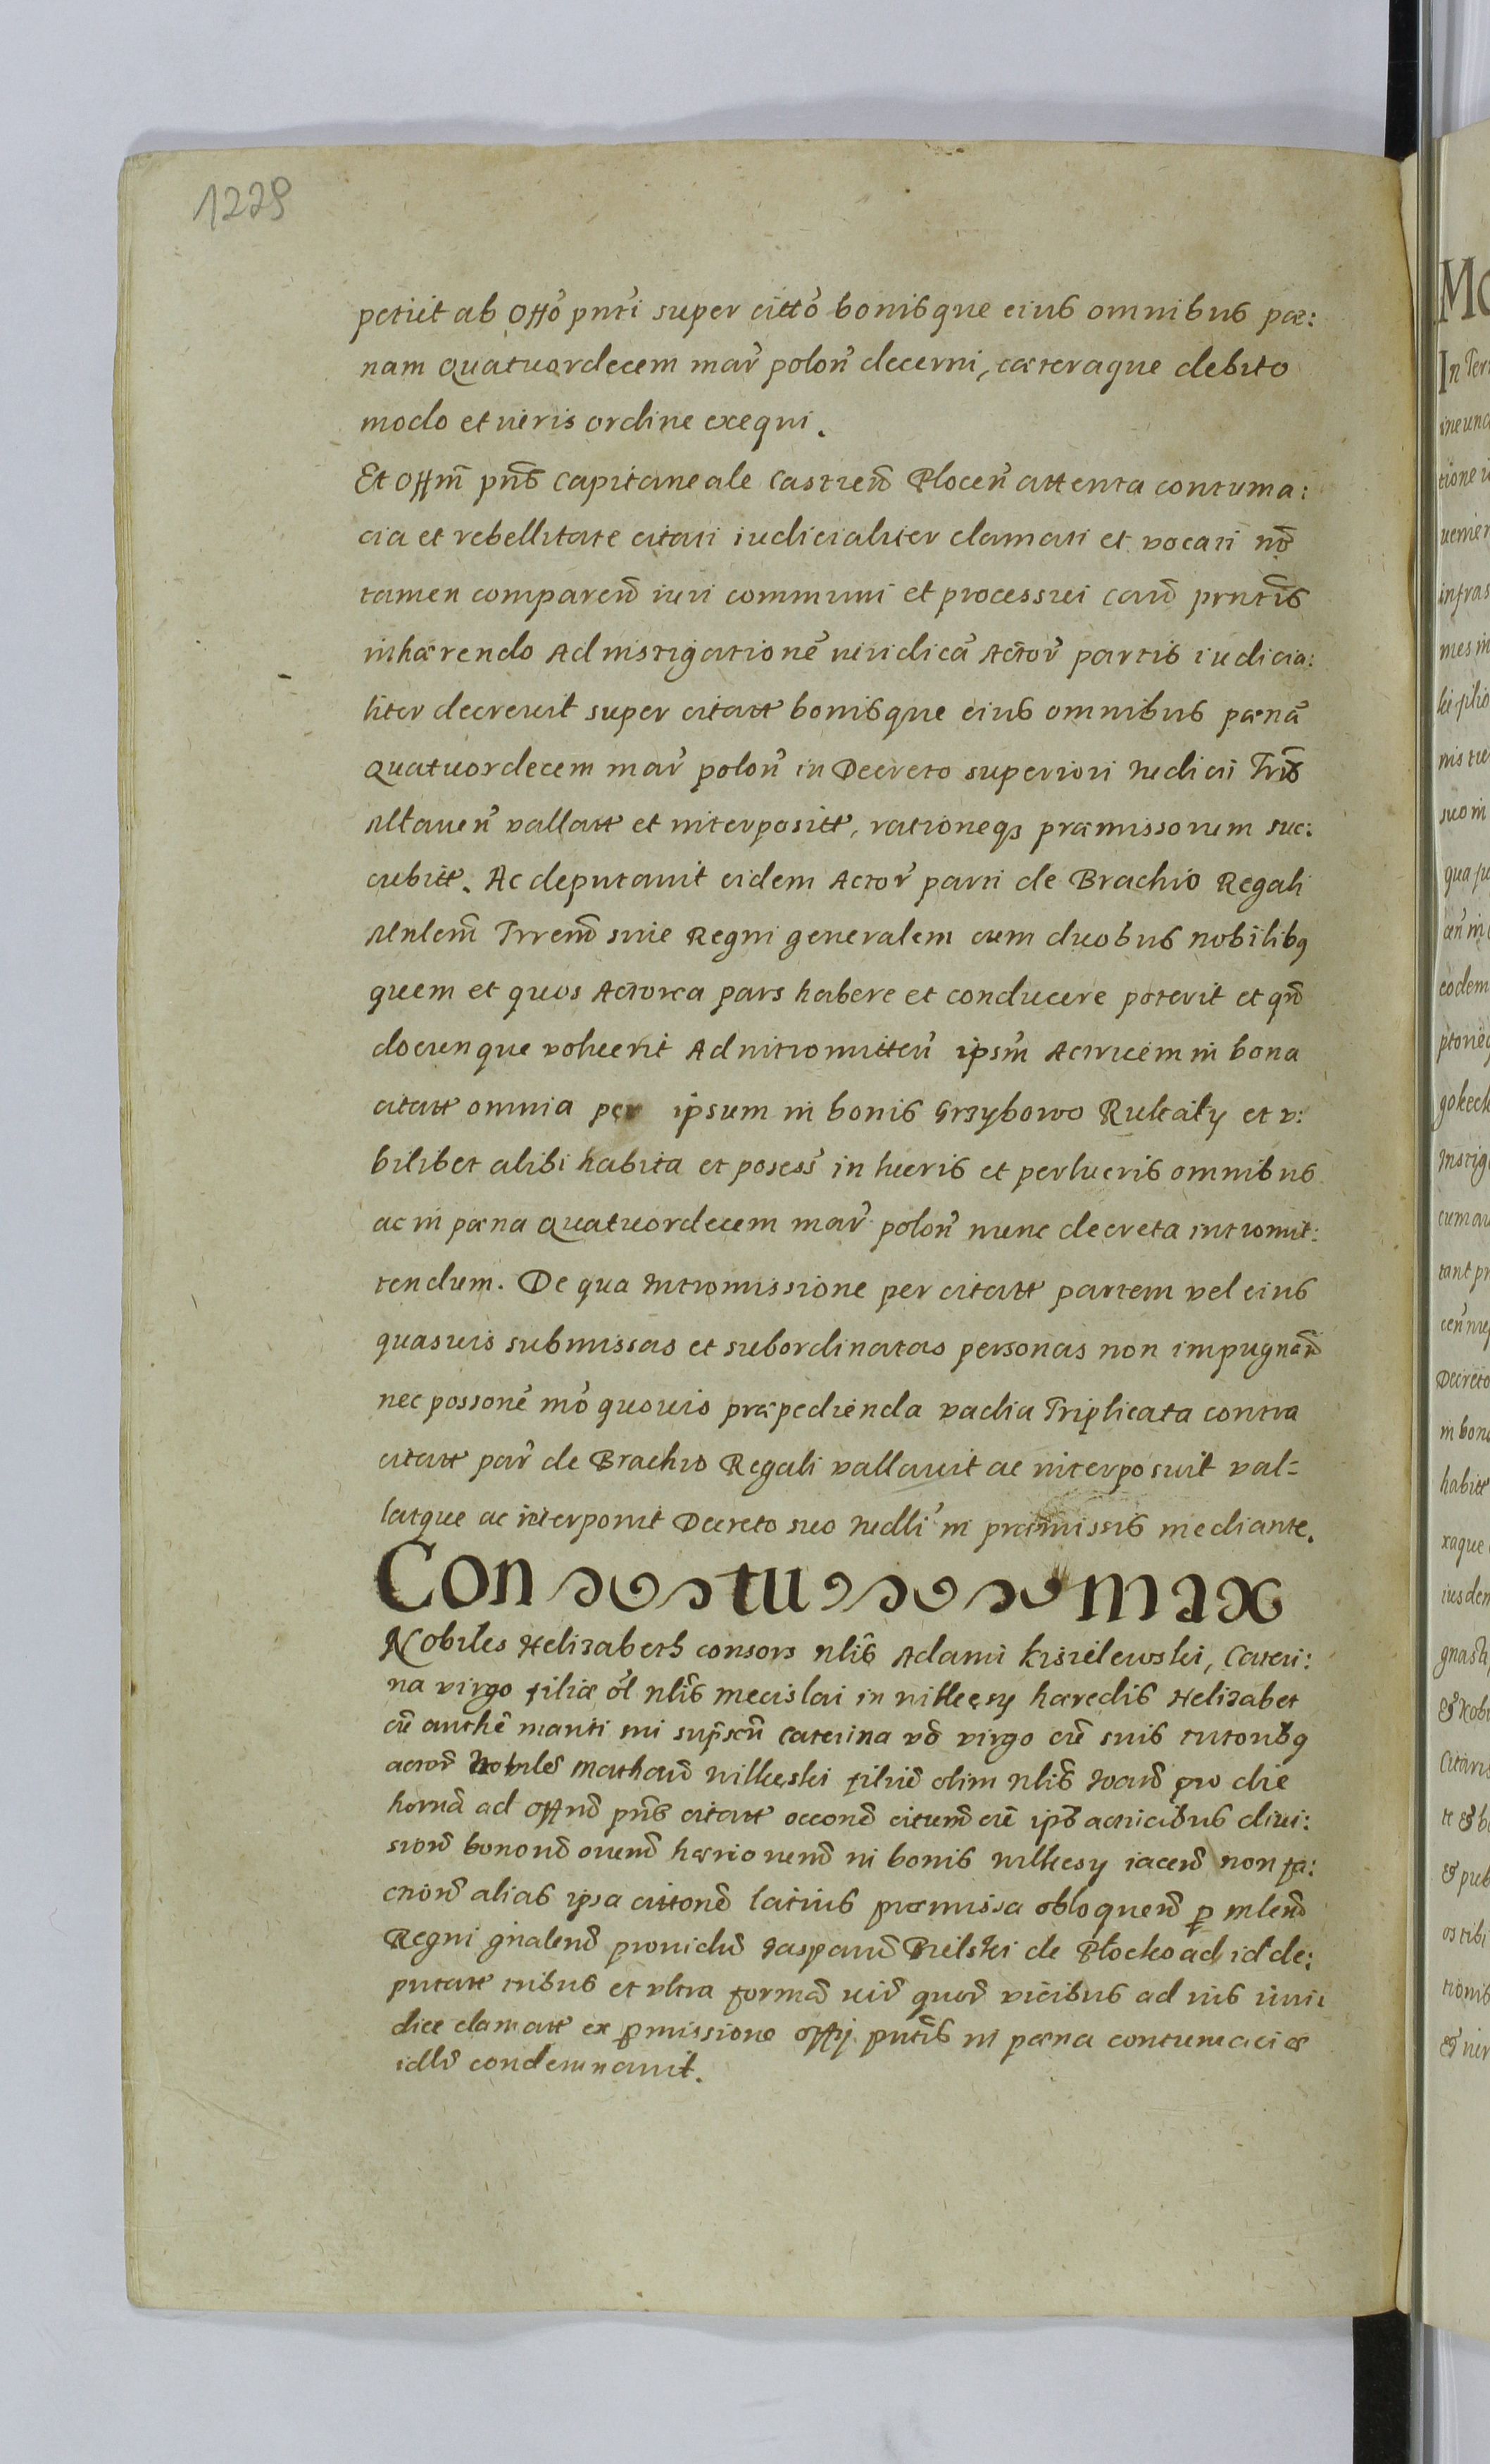 1229
petiit ab Offo pnti super citto bonisque eius omnibus pœ:
nam Quatuordecem mar polon decerni, cæteraque debito
modo et iuris ordine exequi.
Et Offm pns Capitaneale Castren Plocen attenta contuma:
cia et rebellitate citati iudicialiter clamati et vocati no
tamen comparen iuri communi et processui caus prntis
inhærendo Ad instigatione iuridica Actor partis iudicia:
liter decrevit super citatt bonisque eius omnibus pœna
Quatuordecem mar polon in Decreto superiori Iudicii Tris
vallatt et interpositt, rationeq præmissorum suc:
cubitt. Ac deputavit eidem Actor parti de Brachio Regali
Mnlem Trrem sive Regni generalem cum duobus nobilibq
quem et quos Actorea pars habere et conducere poterit et qn
docunque voluerit Ad intromitten ipsm Actricem in bona
citatt omnia per ipsum in bonis Grzybowo Rukały et v:
bilibet alibi habita et posess in lucris et perlucris omnibus
ac in pœna Quatuordecem mar polon nunc decreta intromit:
tendum. De qua Intromissione per citatt partem vel eius
quasvis submissas et subordinatas personas non impugnan
nec possone mo quovis præpedienda vadia Triplicata contra
citatt par de Brachio Regali vallavit ac interposuit val=
latque ac interponit Decreto suo Iudlli in præmissis mediante.
Con tu max
Nobiles Helizabeth consors nlis Adami Kisielewski, Cateri:
na virgo filiæ ol nlis Mecislai in Milkęsy hæredis Helizabet
cu mariti sui Caterina vo virgo cu suis tutoribq
actor Nobiles milkęski filiu olim nlis pro die
horna ad Offm pns citatt occone citum cu ips actricibus divi:
sion bonoru in bonis Milkęsy iacen non fa:
cnion alias ipsa cittone latius præmissa obloquen p mlem
Regni gnalem providu Gasparu Bielski de Płocko ad id de:
putatt tribus et ultra forma iur quor vicibus ad ius iuri
dice clamatt ex pmissione Offij pntis in pœna contumaciæ
idlr condemnavit.